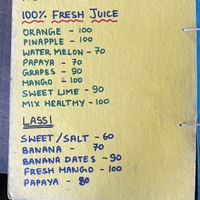 100% FRESH JUICE
ORANGE - 100
PINAPPLE - 100
WATER MELON - 70
PAPAYA - 70
GRAPES - 90
MANGO - 100
SWEET LIME - 90
MIX HEALTHY - 100
LASSI
SWEET/SALT - 60
BANANA - 70
BANANA DATES - 90
FRESH MANGO - 100
PAPAYA - 80